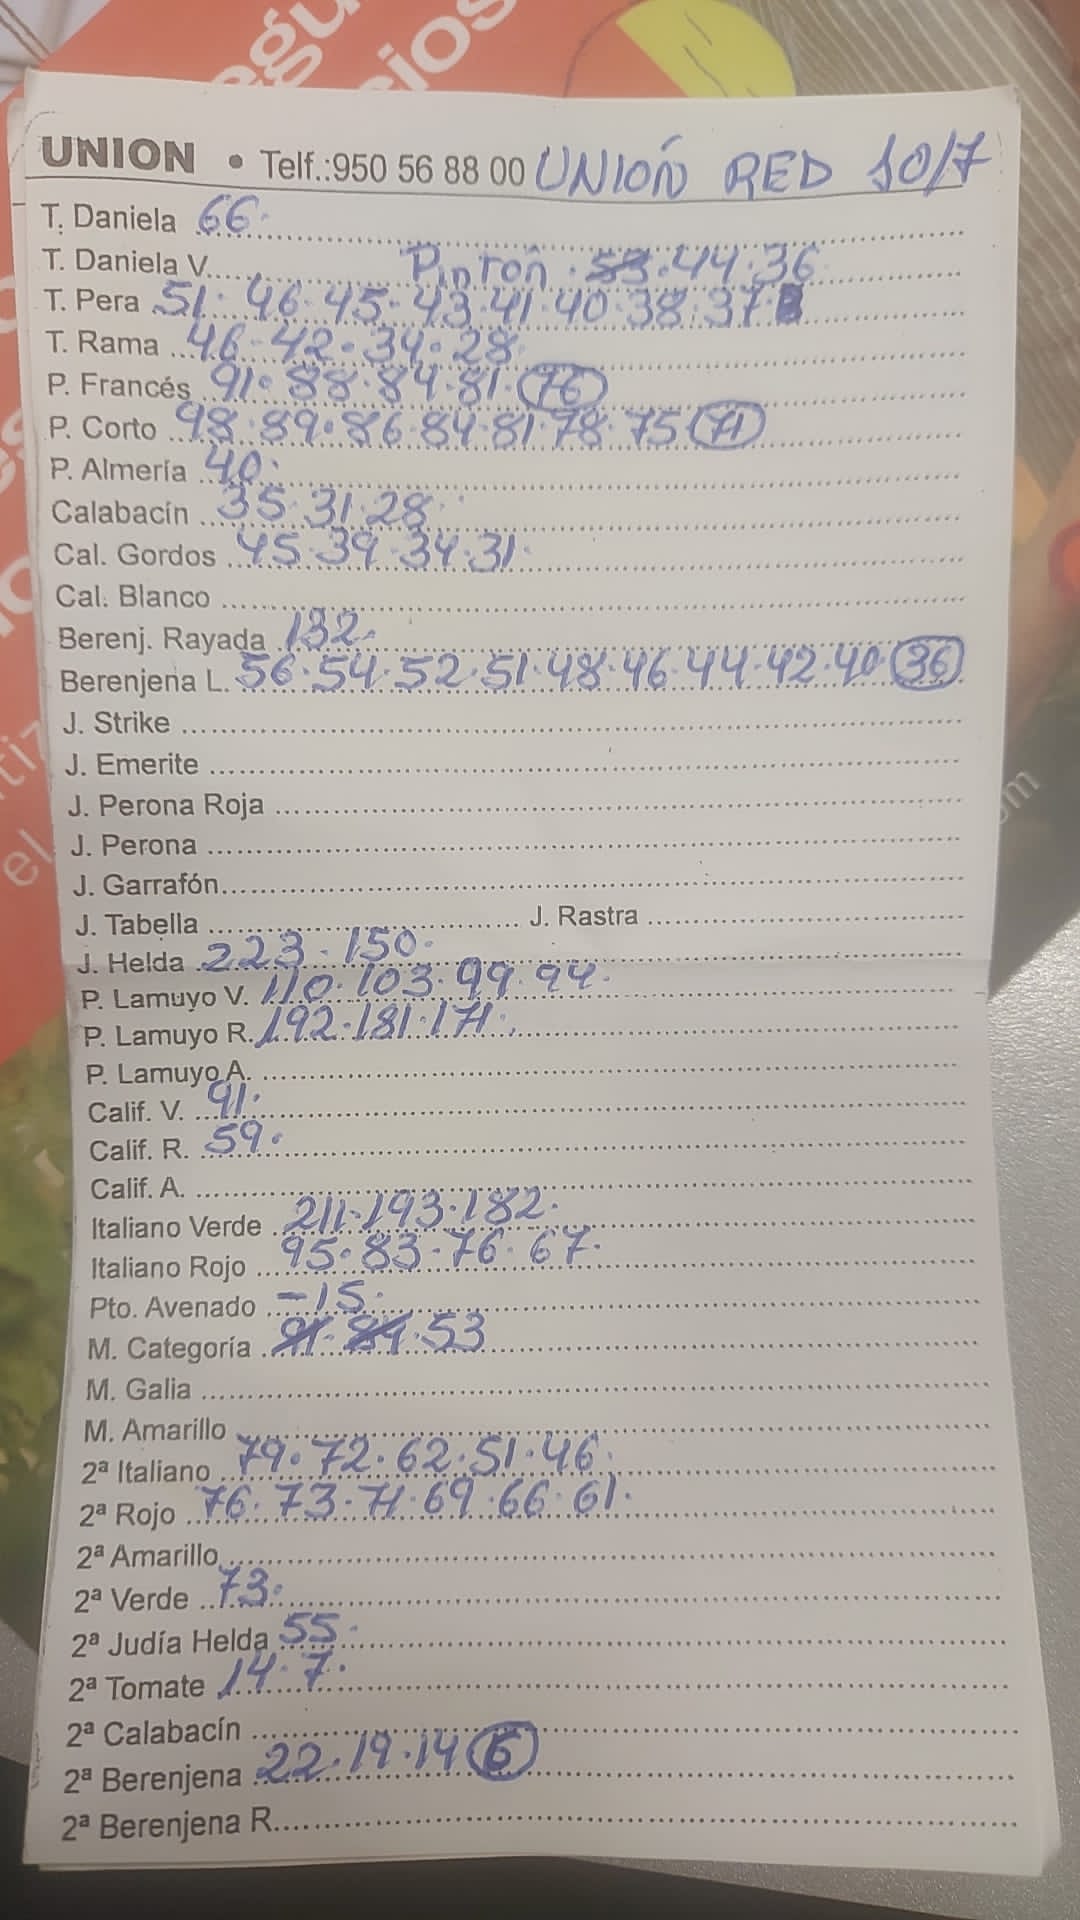 UNION • Telf.:950 56 88 00 UNIÓN RED 10/7
T. Daniela 66.
T. Daniela V. Pintón . 53 . 44 . 36
T. Pera 51 . 46 . 45 . 43 . 41 . 40 . 38 . 37 .
T. Rama 46 . 42 . 34 . 28
P. Francés 91 . 88 . 84 . 81 . 76
P. Corto 98 . 89 . 86 . 84 . 81 . 78 . 75 71
P. Almería 40 .
Calabacín 35 . 31 . 28 .
Cal. Gordos 45 . 39 . 34 . 31 .
Cal. Blanco
Berenj. Rayada 132 .
Berenjena L. 56 . 54 . 52 . 51 . 48 . 46 . 44 . 42 . 40 36
J. Strike
J. Emerite
J. Perona Roja
J. Perona
J. Garrafón
J. Tabella J. Rastra
J. Helda 223 . 150 .
P. Lamuyo V. 110 . 103 . 99 . 94 .
P. Lamuyo R. 192 . 181 . 171 .
P. Lamuyo A.
Calif. V. 91 .
Calif. R. 59 .
Calif. A.
Italiano Verde 211 . 193 . 182 .
Italiano Rojo 95 . 83 . 76 . 67 .
Pto. Avenado - 15 .
M. Categoría 91 . 84 . 53
M. Galia
M. Amarillo
2ª Italiano 79 . 72 . 62 . 51 . 46 .
2ª Rojo 76 . 73 . 71 . 69 . 66 . 61 .
2ª Amarillo
2ª Verde 73 .
2ª Judía Helda 55 .
2ª Tomate 14 . 7 .
2ª Calabacín
2ª Berenjena 22 . 19 . 14 6
2ª Berenjena R.